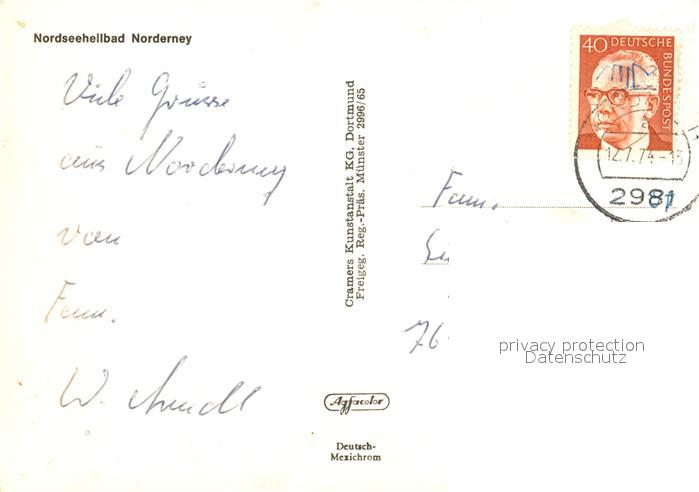 Nordseeheilbad Norderney
Viele Grüsse
aus Norderney
von
Fam.
W. Arndt
Cramers Kunstanstalt KG, Dortmund
Freigeg. Reg.-Präs. Münster 2996/65
Agfacolor
Deutsch-
Mexichrom
40 DEUTSCHE
BUNDESPOST
12.7.74-13
2981
Fam.
76
privacy protection
Datenschutz